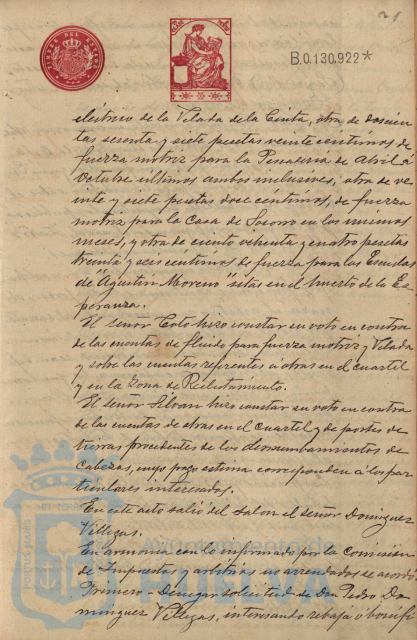 21
B.0.130.922*
eléctrico de la Velada de la Cinta, otra de doscien
tas sesenta y siete pesetas veinte céntimos de
fuerza motriz para la Pescadería de Abril á
Octubre últimos ambos inclusives, otra de ve
inte y siete pesetas doce céntimos, de fuerza
motriz para la Casa de Socorro en los mismos
meses, y otra de ciento ochenta y cuatro pesetas
treinta y seis céntimos de fuerza para las Escuelas
de "Agustin Moreno" sitas en el huerto de la Es
peranza.
El señor Coto hizo constar su voto en contra
de las cuentas de fluido para fuerza motriz y Velada
y sobre las cuentas referentes á obras en el cuartel
y en la Zona de Reclutamiento.
El señor Silvan hizo constar su voto en contra
de las cuentas de obras en el cuartel y de portes de
tierras procedentes de los desmontamientos de
Cabezas, cuyo pago estima corresponden á los par
ticulares interesados.
En este acto salió del Salon el señor Dominguez
Villegas.
En armonia con lo informado por la Comisión
de Impuestos y arbitrios no arrendados se acordó
Primero = Denegar solicitud de Don Pedro Do
minguez Villegas, interesando rebaja ó bonifi
Ayuntamiento de
HUELVA
PORTUS MARIS